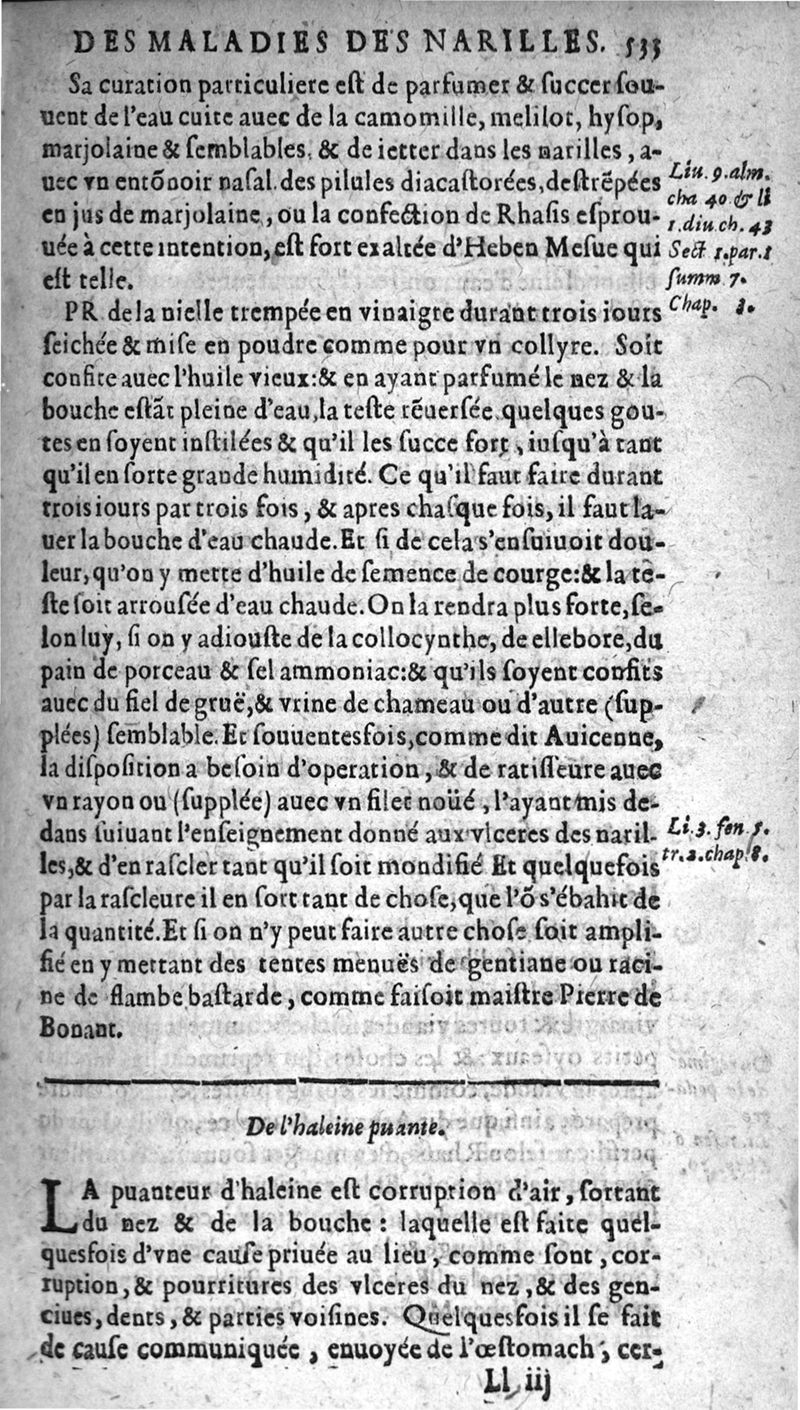 DES MALADIES DES NARILLES. 533
Sa curation particuliere eſt de parfumer & ſuccer ſou-
uent de l'eau cuite auec de la camomille, melilot, hyſop,
marjolaine & ſemblables, & de ietter dans les narilles, a-
uec vn entõnoir naſal des pilules diacaſtorées, deſtrẽpées
en jus de marjolaine, ou la confection de Rhaſis eſprou-
uée à cette intention, eſt fort exaltée d'Heben Meſue qui
eſt telle.
Liu. 9. alm.
cha 40 & li
1. diu ch. 43
Sect 1. par. 1
ſumm 7.
Chap. 3.
PR de la nielle trempée en vinaigre durant trois iours
ſeichée & miſe en poudre comme pour vn collyre. Soit
confite auec l'huile vieux: & en ayant parfumé le nez & la
bouche eſtãt pleine d'eau, la teſte rẽuerſée quelques gou-
tes en ſoyent inſtilées & qu'il les ſucce fort, iuſqu'à tant
qu'il en ſorte grande humidité. Ce qu'il faut faire durant
trois iours par trois fois, & apres chaſque fois, il faut la-
uer la bouche d'eau chaude. Et ſi de cela s'enſuiuoit dou-
leur, qu'on y mette d'huile de ſemence de courge: & la te-
ſte ſoit arrouſée d'eau chaude. On la rendra plus forte, ſe-
lon luy, ſi on y adiouſte de la collocynthe, de ellebore, du
pain de porceau & ſel ammoniac: & qu'ils ſoyent confits
auec du fiel de gruë, & vrine de chameau ou d'autre (ſup-
plées) ſemblable. Et ſouuentesfois, comme dit Auicenne,
la diſpoſition a beſoin d'operation, & de ratiſſeure auec
vn rayon ou (ſupplée) auec vn filet noüé, l'ayant mis de-
dans ſuiuant l'enſeignement donné aux vlceres des naril-
les, & d'en raſcler tant qu'il ſoit mondifié Et quelquefois
par la raſcleure il en ſort tant de choſe, que l'õ s'ébahit de
la quantité. Et ſi on n'y peut faire autre choſe ſoit ampli-
fié en y mettant des tentes menuës de gentiane ou raci-
ne de flambe baſtarde, comme faiſoit maiſtre Pierre de
Bonant.
Li. 3. fen 5.
tr. 2. chap. 8.
De l'haleine puante.
LA puanteur d'haleine eſt corruption d'air, ſortant
du nez & de la bouche : laquelle eſt faite quel-
quesfois d'vne cauſe priuée au lieu, comme ſont, cor-
ruption, & pourritures des vlceres du nez, & des gen-
ciues, dents, & parties voiſines. Quelquesfois il ſe fait
de cauſe communiquée, enuoyée de l'œſtomach, cer-
Ll iij